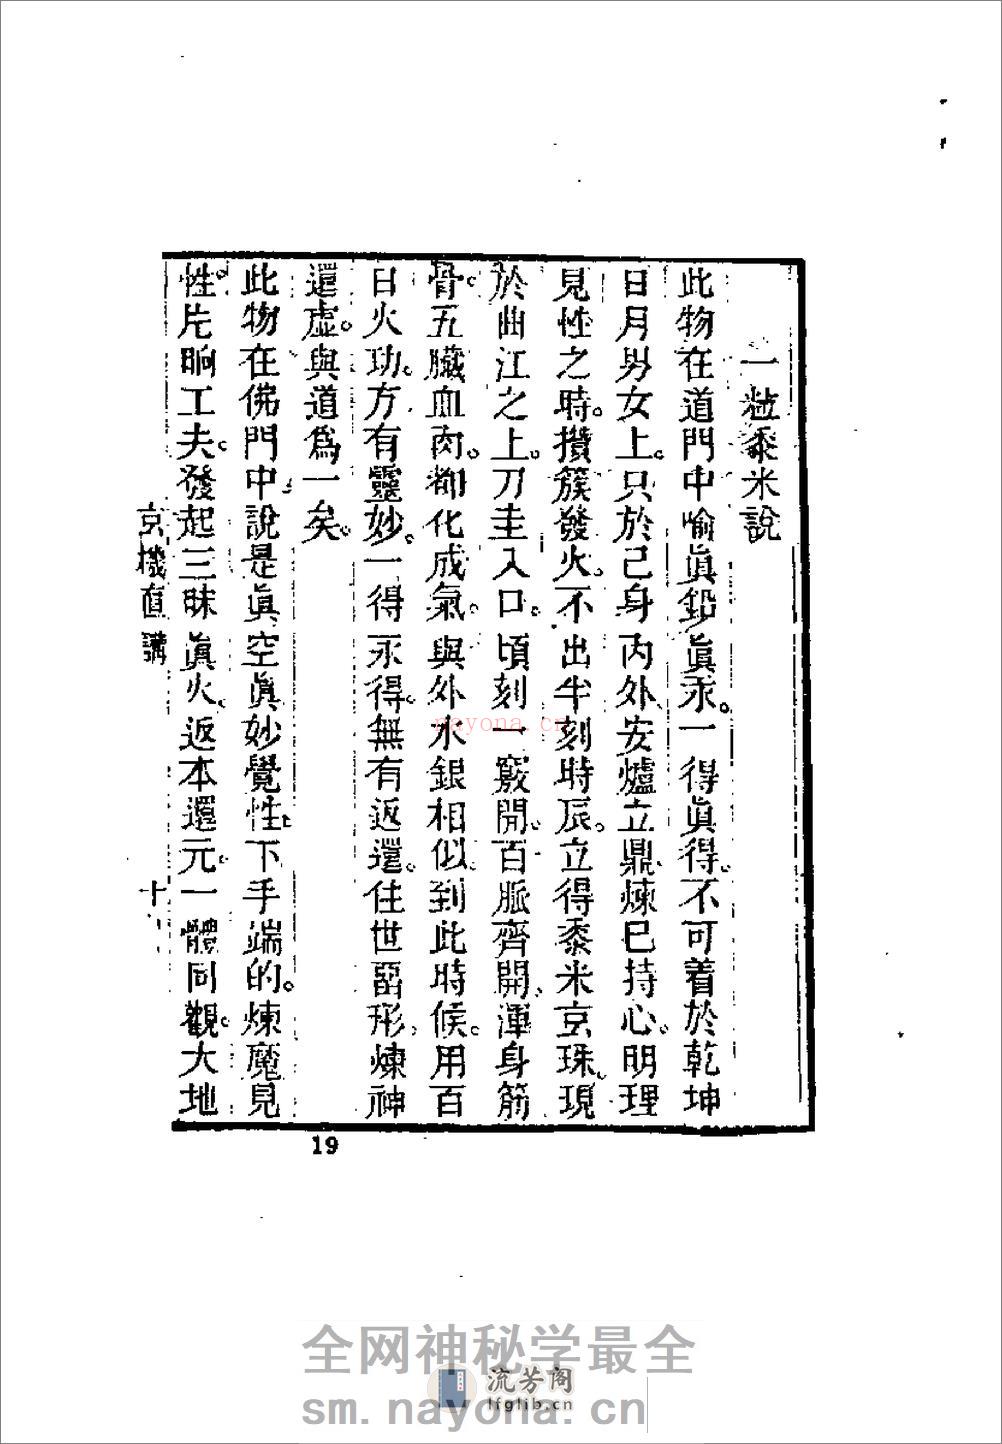 一粒黍米說
此物在道門中喻眞鉛眞汞。一得眞得。不可着於乾坤
日月男女上。只於己身內外安爐立鼎。煉己持心。明理
見性之時。攢簇發火。不出半刻時辰。立得黍米玄珠。現
於曲江之上。刀圭入口。頃刻一竅開。百脈齊開。渾身筋
骨。五臟血肉。都化成氣。與外水銀相似。到此時候。用百
日火功。方有靈妙。一得永得。無有返還。住世留形。煉神
還虛。與道爲一矣。
此物在佛門中。說是眞空眞妙覺性。下手端的。煉魔見
性。片晌工夫。發起三昧眞火。返本還元。一體同觀。大地
玄機直講
十
19
nayona.cn
全网神秘学最全
流芳阁
lfglib.cn
sm.nayona.cn